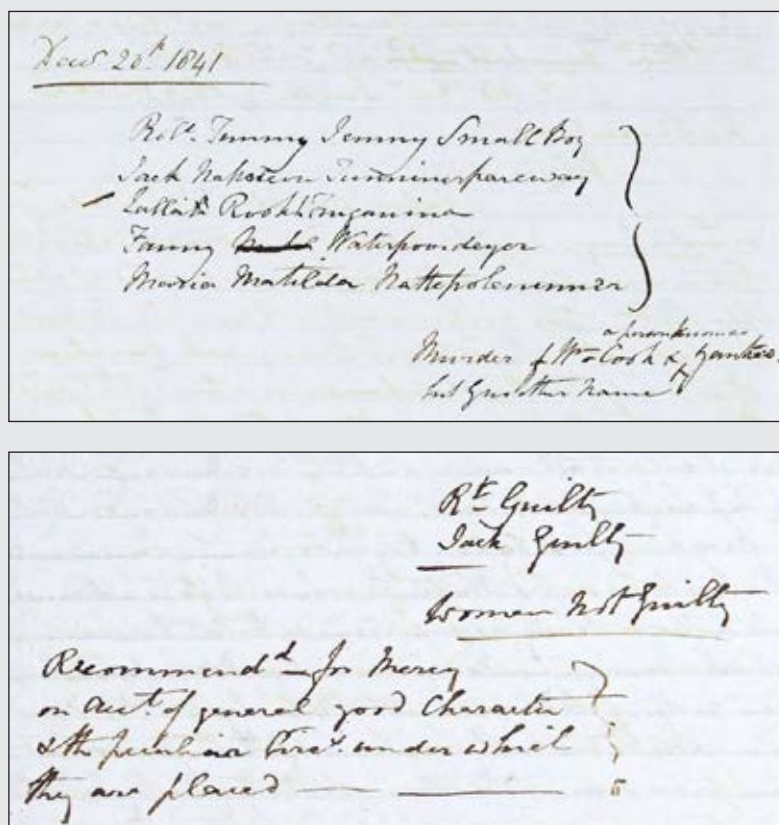 Decr 20th 1841
Robt. Timmy Jemmy Small Boy
Jack Napoleon Tunninerpareway
Lallah Rookh Truganina
Fanny Waterpoordeyer
Maria Matilda Nattepolenimmer
a person known as
Murder of Wm Cook & Yankee
but Guilty
Jack Guilty
Women Not Guilty
Recommendd for Mercy
on acct. of general good Character
& the peculiar Circs. under which
they are placed